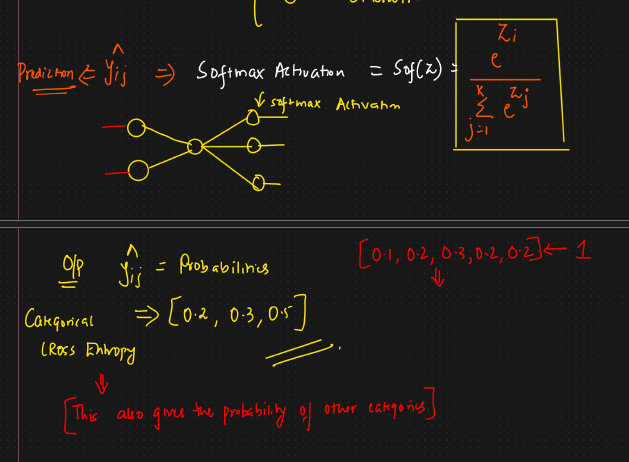 Prediction ⇐ ŷij ⇒ Softmax Activation = Sof(z) = e^zi / Σ_{j=1}^{K} e^zj
softmax Activation
O/P ŷij = Probabilities
[0.1, 0.2, 0.3, 0.2, 0.2] ← 1
Categorical ⇒ [0.2, 0.3, 0.5]
Cross Entropy
[This also gives the probability of other categories]